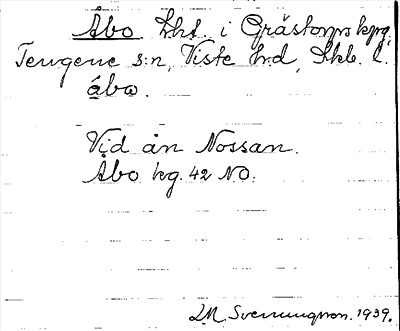 Åbo Lht. i Grästorps kpg,
Tengene s:n, Viste h:d, Skb. l.
åbo.
Vid ån Nossan.
Åbo kg. 42 NO.
Svenningson. 1939.